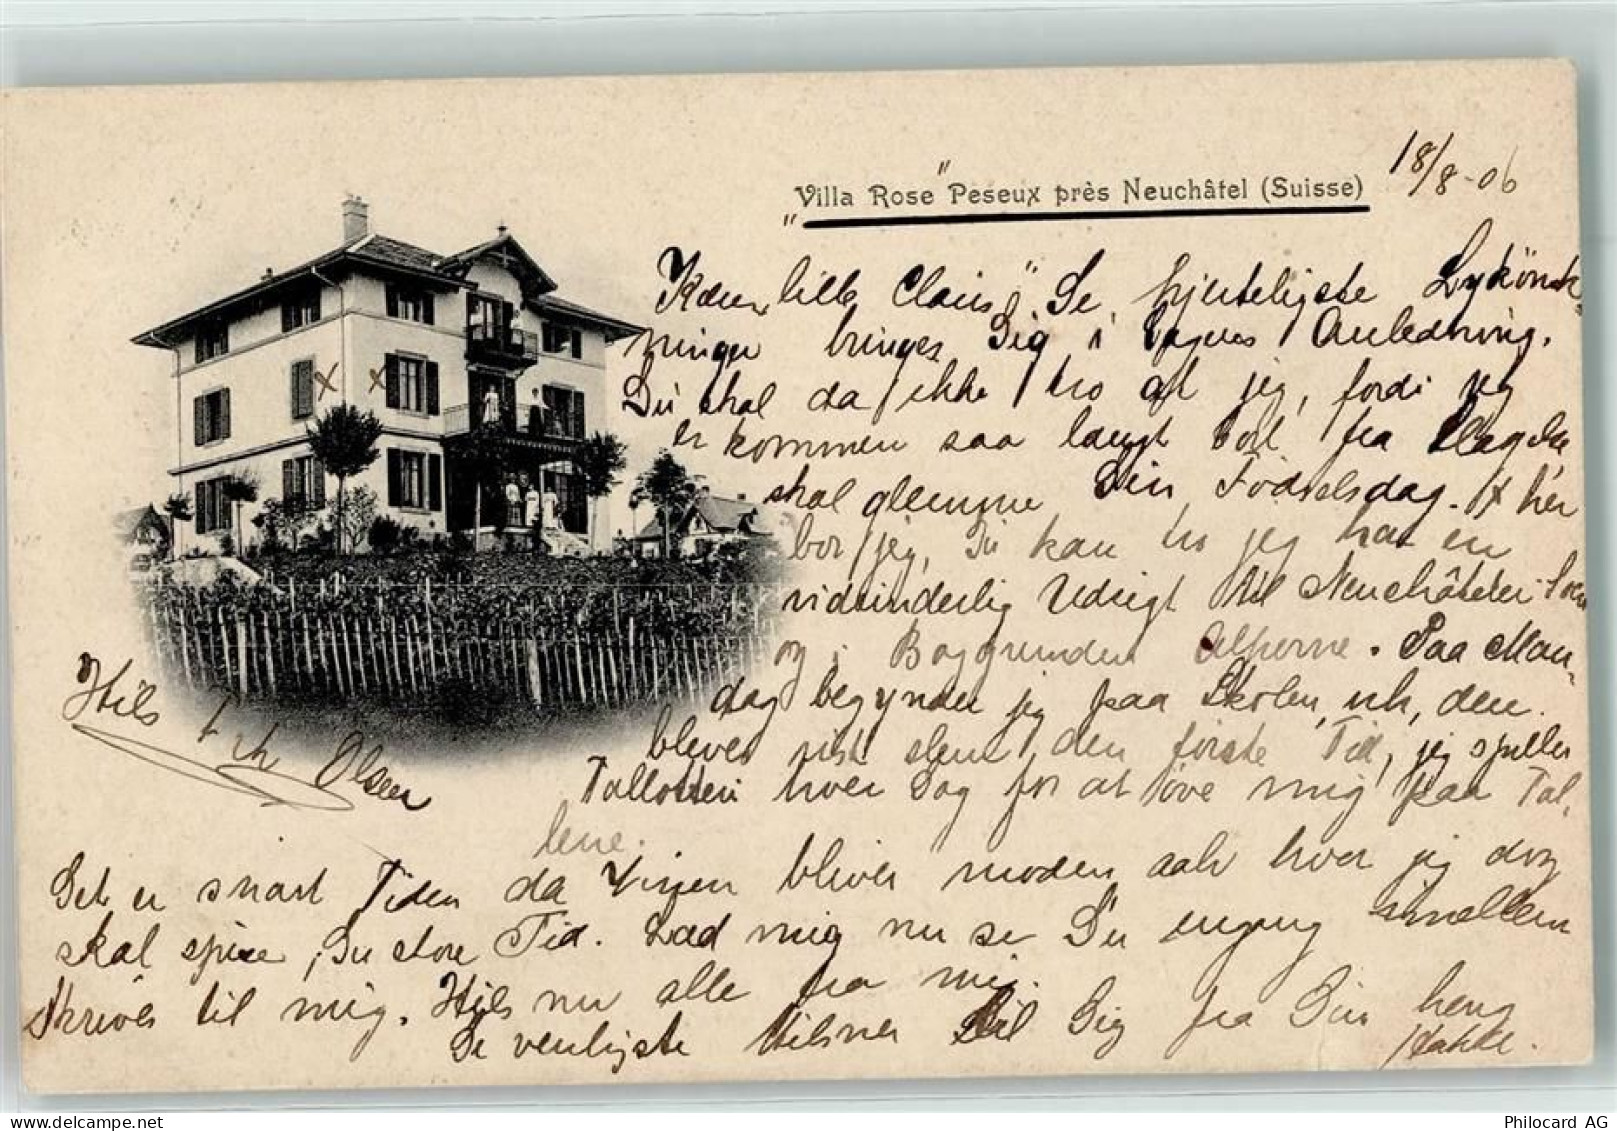 "Villa Rose" Peseux près Neuchâtel (Suisse)
18/8-06
Kære lille Claus! De hjerteligste Lykönsk-
ninger bringes Dig i Dagens Anledning.
Du skal da ikke tro at jeg, fordi jeg
er kommen saa langt bort fra
skal glemme Din Födselsdag. X her
bor jeg, Du kan tro jeg har en
vidunderlig Udsigt til Neuchâteler
og i Baggrunden Alperne. Paa Man-
dag begynder jeg paa Skolen, uh, den
bliver vist slem den förste Tid, jeg spiller
hver Dag for at töve mig paa Tal-
lene.
Det er snart Tiden da Vinen bliver moden aah hvor jeg dog
skal spise, Du store Tid. Lad mig nu se Du engang imellem
skriver til mig. Hils nu alle fra mig.
De venligste Hilsner til Dig fra Din heng.
Hils Frk Olsen
Philocard AG